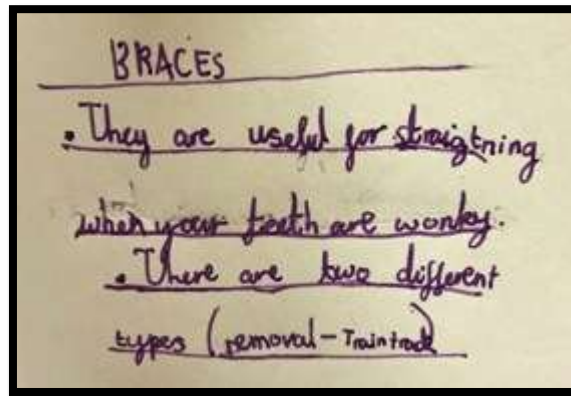 BRACES
• They are useful for straigtning
when your teeth are wonky.
• There are two different
types (removal - Traintrack)